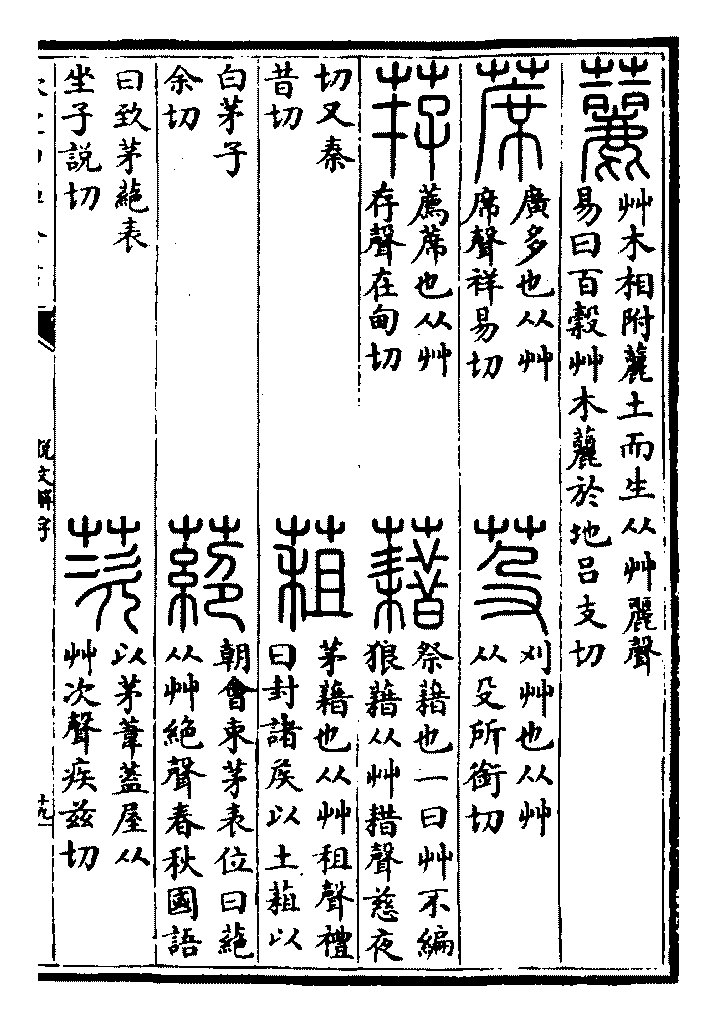 䕻
艸木相附䕻土而生从艸麗聲
易曰百穀艸木䕻於地吕支切
蓆
廣多也从艸
席聲祥易切
芟
刈艸也从艸
从殳所銜切
荐
薦蓆也从艸
存聲在甸切
藉
祭藉也一曰艸不編
狼藉从艸耤聲慈夜
切又秦
昔切
蒩
茅藉也从艸租聲禮
曰封諸矦以土蒩以
白茅子
余切
蕝
朝會束茅表位曰蕝
从艸絕聲春秋國語
曰致茅蕝表
坐子說切
茨
以茅葦蓋屋从
艸次聲疾兹切
說文解字